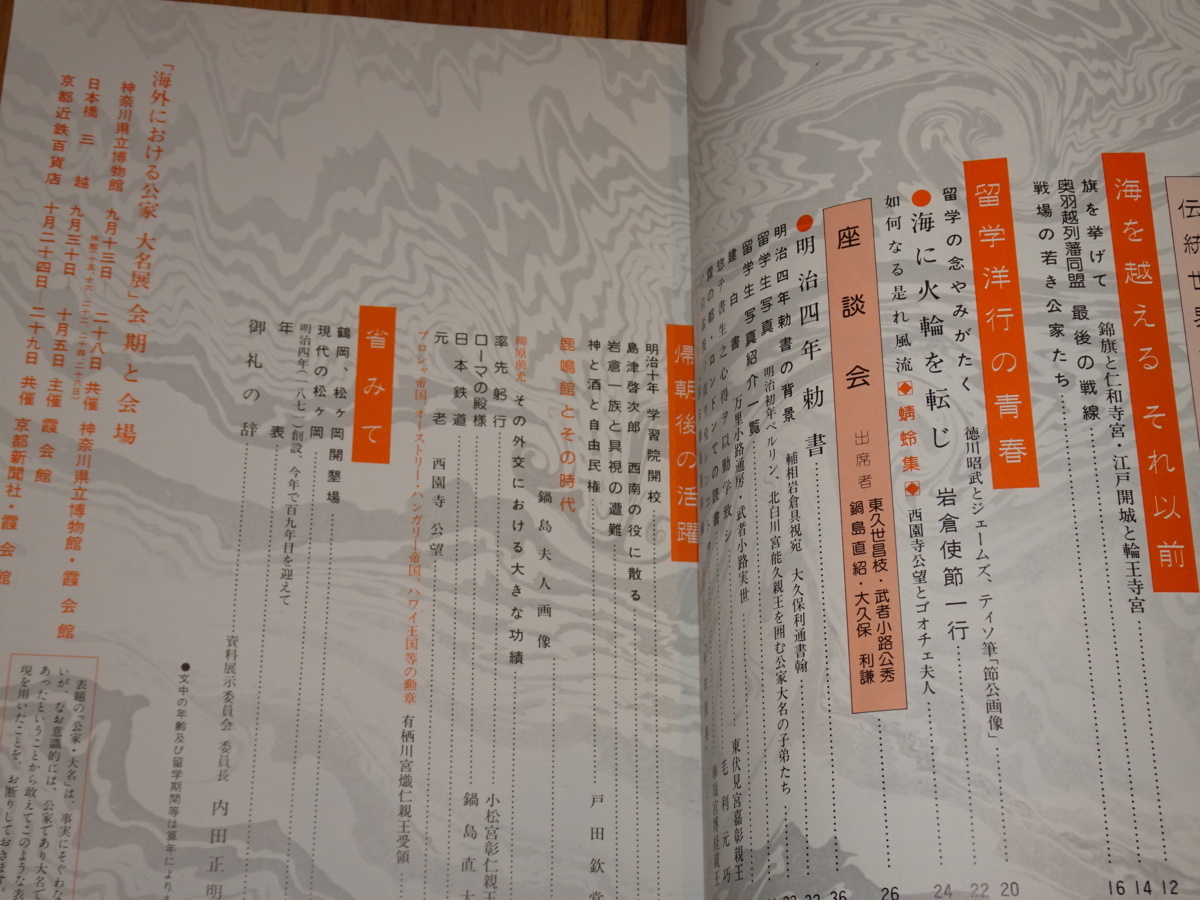 伝統世界
海を越える それ以前
旗を挙げて
錦旗と仁和寺宮・江戸開城と輪王寺宮
奥羽越列藩同盟 最後の戦線
戦場の若き公家たち
12
14
16
留学洋行の青春
留学の念やみがたく
徳川昭武とジェームズ、ティソ筆「節公画像」
20
●海に火輪を転じ 岩倉使節一行
22
如何なる是れ風流◆蜻蛉集◆西園寺公望とゴオチェ夫人
24
座談会
出席者
東久世昌枝・武者小路公秀
鍋島直紹・大久保 利謙
26
●明治四年 勅書
36
明治四年勅書の背景
輔相岩倉具視宛 大久保利通書翰
留学生写真
明治初年ベルリン、北白川宮能久親王を囲む公家大名の子弟たち
留学生写真紹介一覧
建白書
万里小路通房・武者小路実世
東伏見宮嘉彰親王
惣テ書生之心得ヲ以勤学致シ
毛利元巧
帰朝後の活躍
明治十年 学習院開校
島津啓次郎 西南の役に散る
岩倉一族と具視の遭難
神と酒と自由民権
戸田欽堂
鹿鳴館とその時代
鍋島夫人画像
柳原前光
その外交における大きな功績
率先躬行
小松宮彰仁親王
ローマの殿様
鍋島直大
日本鉄道
元老 西園寺公望
プロシャ帝国、オーストリー・ハンガリー帝国、ハワイ王国等の勲章
有栖川宮熾仁親王受領
省みて
鶴岡、松ヶ岡開墾場
現代の松ヶ岡
明治四年(一八七一)創設、今年で百九年目を迎えて
年表
御礼の辞
資料展示委員会 委員長 内田正明
●文中の年齢及び留学期間等は算年により
「海外における公家 大名展」会期と会場
神奈川県立博物館 九月十三日―二十八日 共催 神奈川県立博物館・霞会館
日本橋三越 九月三十日―十月五日 主催 霞会館
京都近鉄百貨店 十月二十四日―二十九日 共催 京都新聞社・霞会館
表題の「公家・大名」は、事実にそぐわな
いが、なお意識的には、公家であり大名で
あったということから敢えてこのような表
現を用いたことを、お断りしておきます。